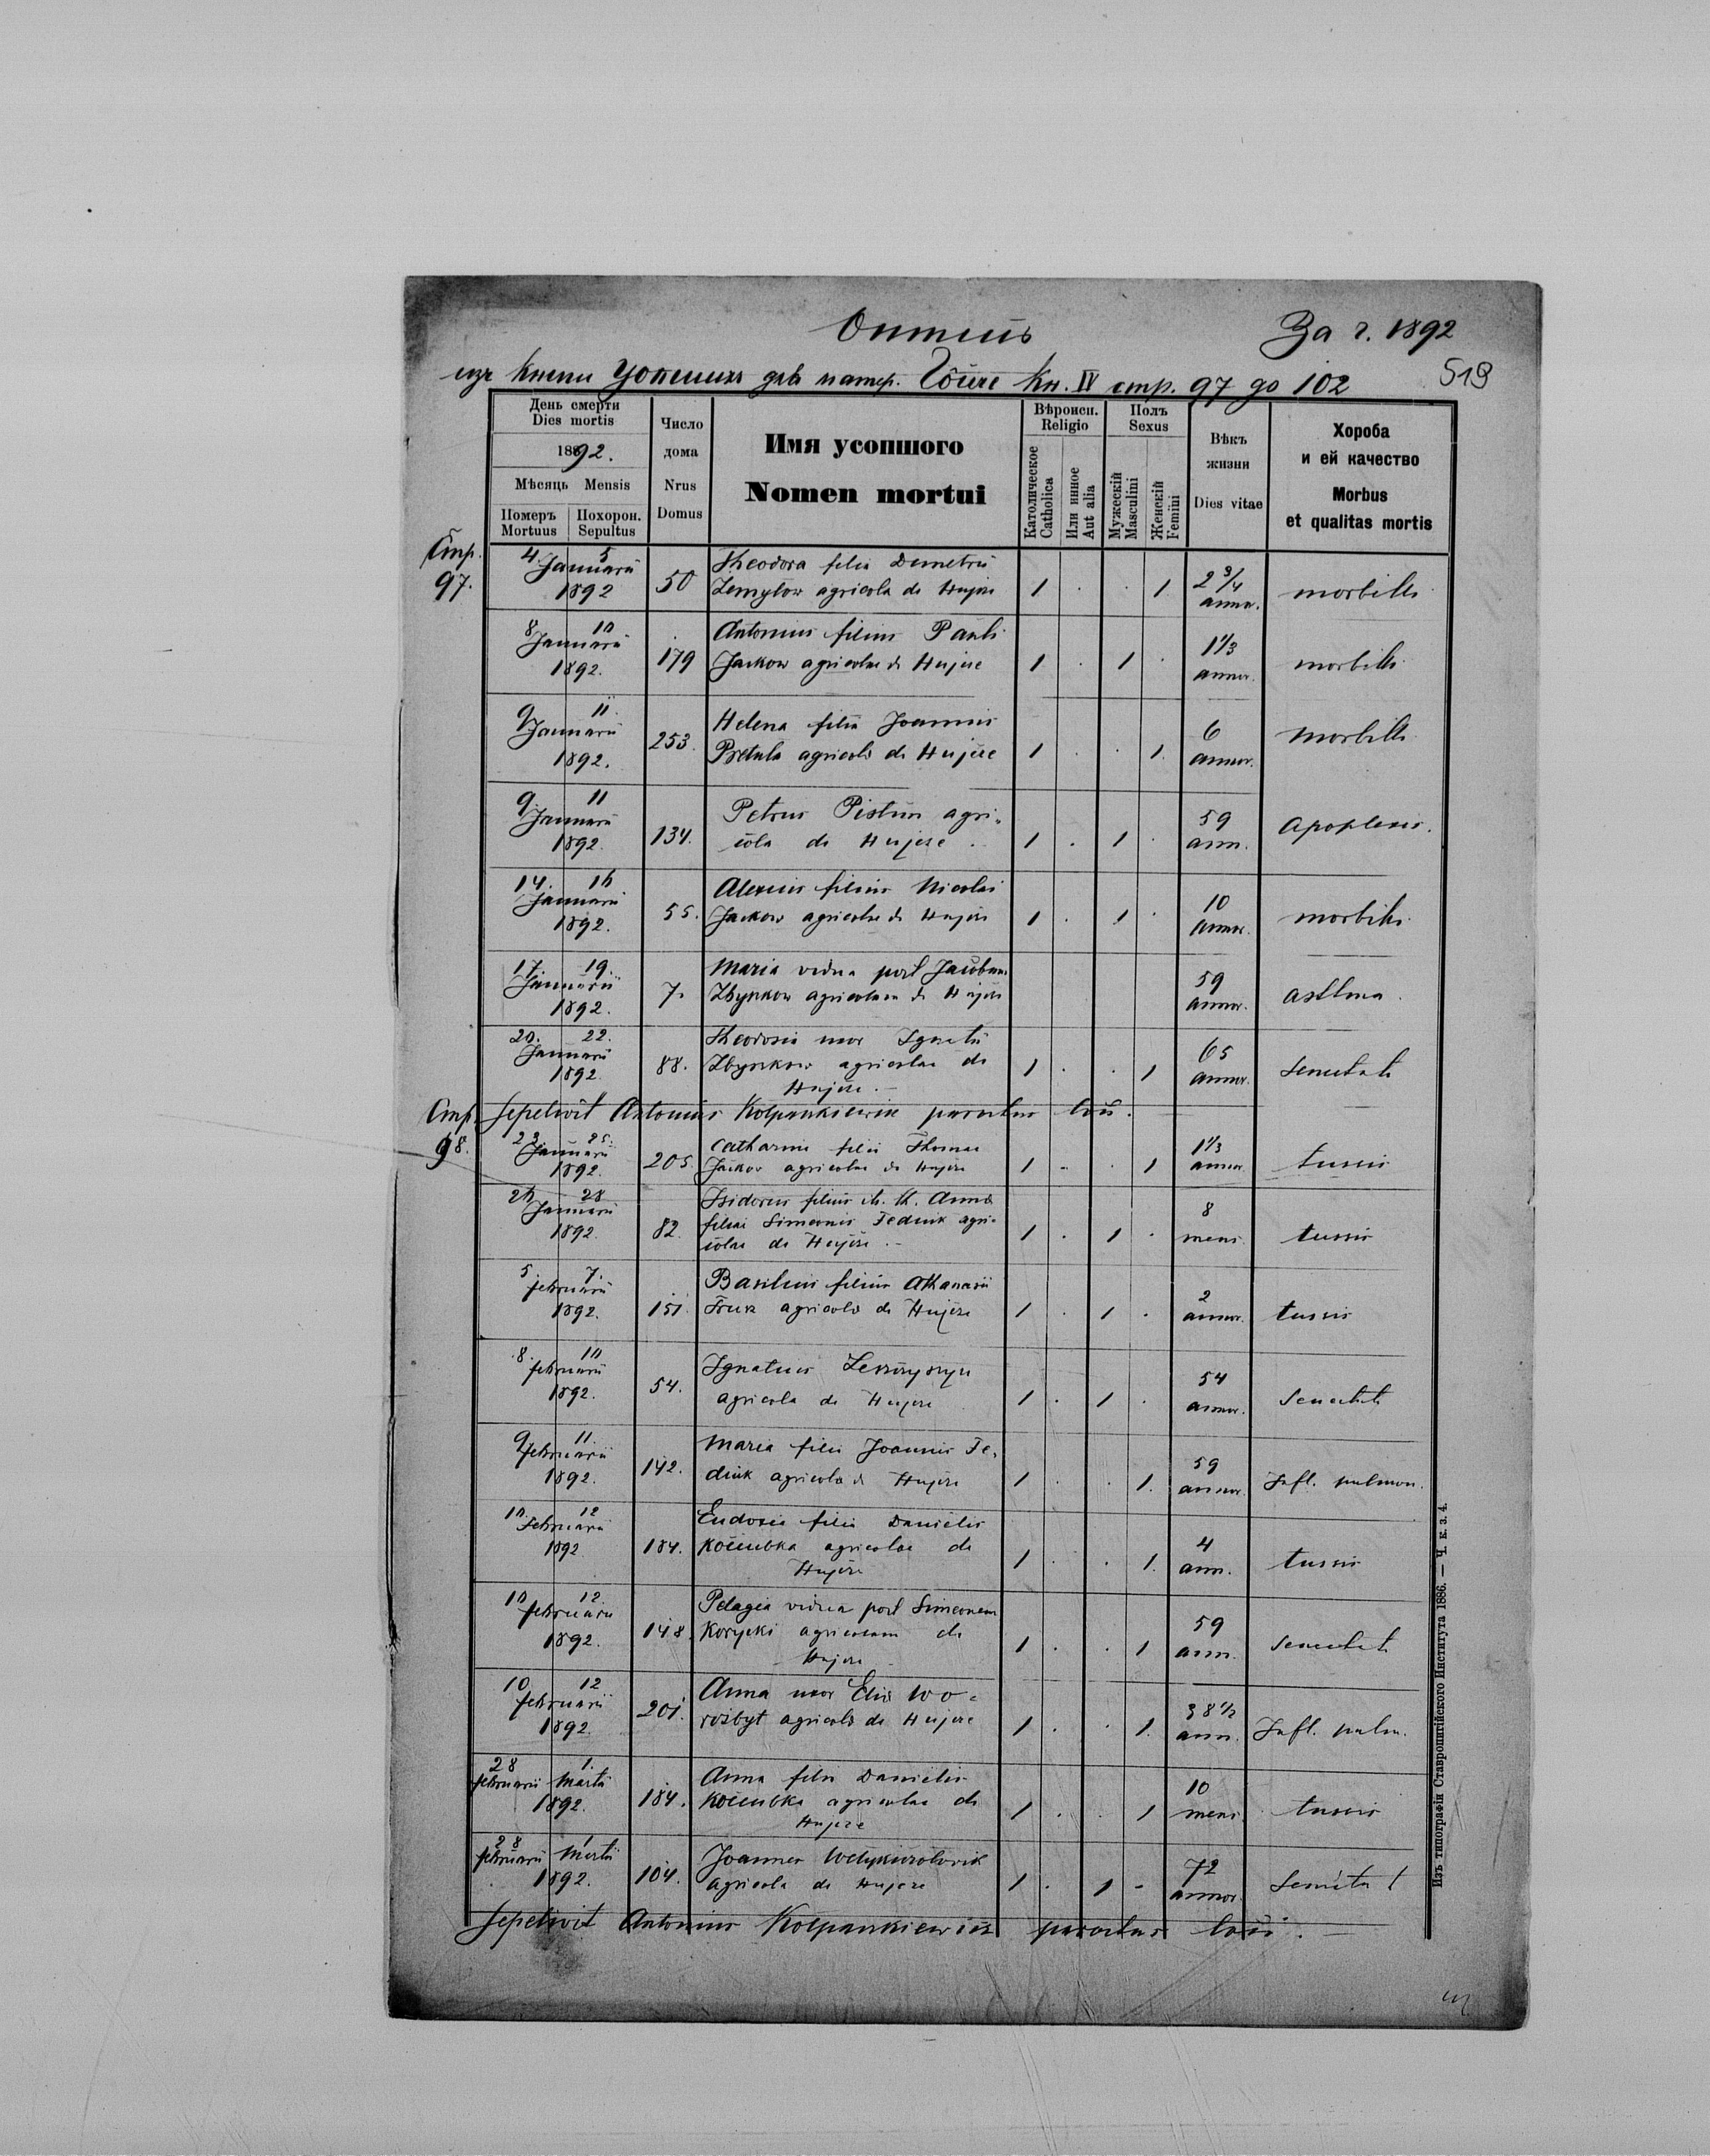 За г. 1892
519
изъ Книги Усопшихъ для матер. Кн. IV стр. 97 до 102
День смерти
Dies mortis
1892.
Мѣсяць Mensis
Померъ Похорон.
Mortuus Sepultus
Число
дома
Nrus
Domus
Имя усопшого
Nomen mortui
Вѣроисп.
Religio
Католическое
Catholica
Или инное
Aut alia
Полъ
Sexus
Мужескій
Masculini
Женскій
Femini
Вѣкъ
жизни
Dies vitae
Хороба
и ей качество
Morbus
et qualitas mortis
Стр.
97.
4. 5
Januarii
1892
50
Theodora filia Demetrii
Zemylow agricola de Hujcze
1 . . 1
2 3/4
annor.
morbilli
8 10
Januarii
1892.
179
Antonius filius Pauli
Jackow agricolae de Hujcze
1 . 1 .
1 1/3
annor.
morbilli
9 11.
Januarii
1892.
253.
Helena filia Joannis
agricolae de Hujcze
1 . . 1.
6
annor.
morbilli
9. 11
Januarii
1892.
134.
Petrus Pistun agri-
cola de Hujcze .
1 . 1 .
59
ann.
Apoplexis.
14. 16
Januarii
1892.
55.
Alexius filius Nicolai
Jackow agricolae de Hujcze
1 . 1 .
10
annor.
morbilli
17. 19.
Januarii
1892.
7.
Maria vidua post Jacobum
Zbyrkow agricolam de Hujcze
59
annor.
asthma.
20. 22.
Januarii
1892
88.
Theodosia uxor Ignatii
Zbyrkow agricolae de
Hujcze.
1 . . 1
65
annor.
Senectute
Стр. Sepelivit Antonius Kolpankiewicz parochus loci.
98.
23 25.
Januarii
1892.
205
Catharina filia Thomae
Jackow agricolae de Hujcze
1 - . 1
1 1/3
annor.
tussis
26 28
Januarii
1892.
82.
Isidorus filius Annae
filiae Simeonis Fediuk agri-
colae de Hujcze.
1 . 1 .
8
mens.
tussis
5. 7.
februarii
1892.
151.
Basilius filius Athanasii
agricolae de Hujcze
1 . 1 .
2
annor.
tussis
8. 10
februarii
1892.
54.
Ignatius
agricola de Hujcze
1 . 1 .
54
annor.
Senectute
9 11.
februarii
1892.
142.
Maria filia Joannis Fe-
diuk agricolae de Hujcze
1 . . 1.
59
annor.
Infl. pulmon.
10. 12
februarii
1892
184.
Eudoxia filia Danielis
Kociubka agricolae de
Hujcze
1 . . 1.
4
ann.
tussis
10 12.
februarii
1892.
148.
Pelagia vidua post Simeonem
Korycki agricolam de
Hujcze
1 . . 1
59
ann.
Senectute
10 12
februarii
1892.
201.
Anna uxor Eliae Wo-
rożbyt agricolae de Hujcze
1 . . 1.
38 1/2
ann.
Infl. pulm.
28 1.
februarii Martii
1892.
184.
Anna filia Danielis
Kociubka agricolae de
Hujcze
1 . . 1
10
mens.
tussis
28 1
februarii Martii
1892.
104.
Joannes
agricola de Hujcze
1 . 1 -
72
annor.
Sepelivit Antonius Kolpankiewicz parochus loci.
Изъ типографіи Ставропигійского Института 1886. — Ч. к. з. 4.